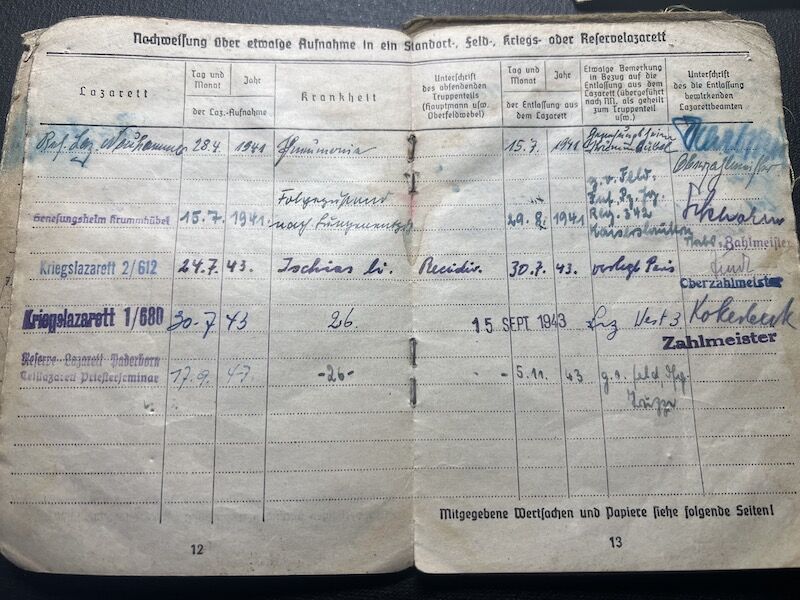 Nachweisung über etwaige Aufnahme in ein Standort-, Feld-, Kriegs- oder Reservelazarett
Lazarett
Tag und Monat
Jahr
der Laz.-Aufnahme
Krankheit
Unterschrift des absendenden Truppenteils (Hauptmann usw. Oberfeldwebel)
Tag und Monat
Jahr
der Entlassung aus dem Lazarett
Etwaige Bemerkung in Bezug auf die Entlassung aus dem Lazarett (übergeführt nach NN, als geheilt zum Truppenteil usw.)
Unterschrift des die Entlassung bewirkenden Lazarettbeamten
Res. Laz. Neuhammer 28.4. 1941 Pneumonie 15.7. 1941 Genesungsheim
Oberzahlmeister
g.v. Feld.
Genesungsheim Krummhübel 15.7. 1941. Folgezustand nach Lungenentz. 29. 1941
Kaiserslautern
Zahlmeister
Kriegslazarett 2/612 24.7. 43. Ischias li. Recidiv. 30.7. 43. verlegt Paris
Oberzahlmeister
Kriegslazarett 1/680 30.7 43 26. 15. SEPT. 1943 Laz West 3
Zahlmeister
Reserve-Lazarett Paderborn
Teillazarett Priesterseminar 17.9. 43. -26- 5.11. 43
Mitgegebene Wertsachen und Papiere siehe folgende Seiten!
12
13